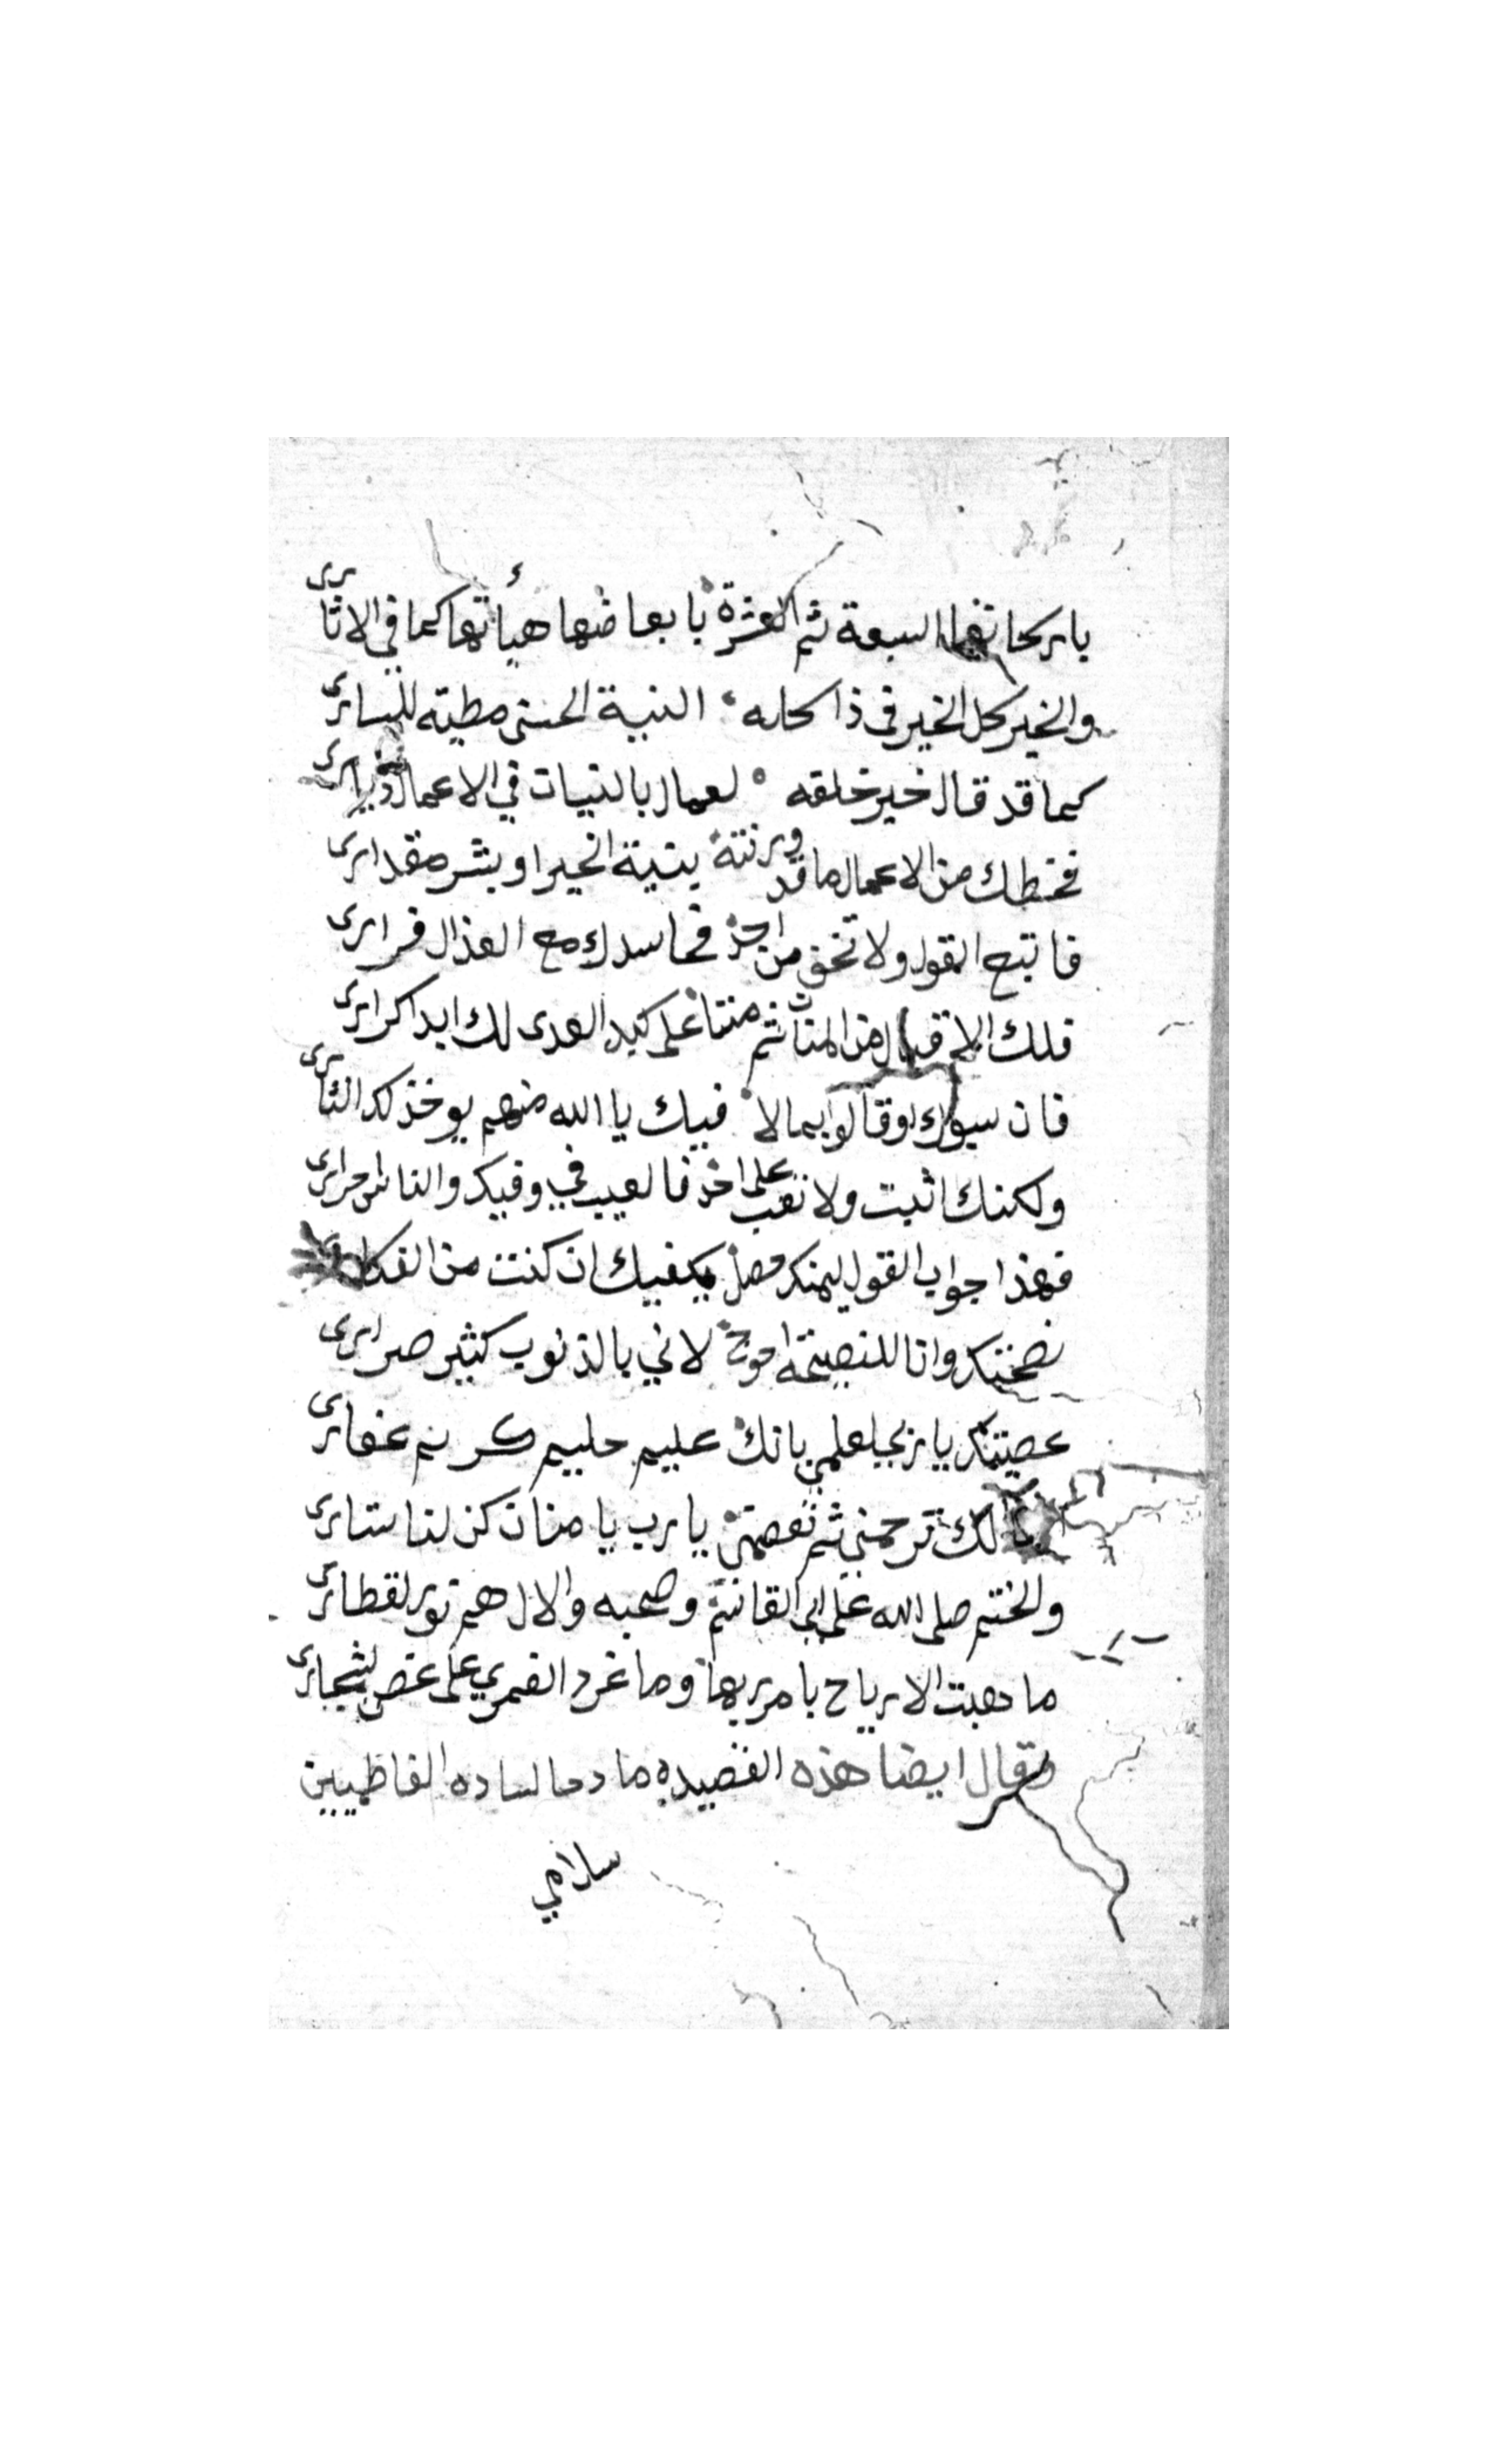 باركانها السبعة ثم العشرة بابعاضها هيأتها كما في الاثارى
والخير كل الخير في ذا كله النية الحسنى مطية للسائرى
كما قد قال خير خلقه لعمال بالنيات في الاعمال
فحظك من الاعمال ما قد ورنته بنية الخير او بشر مقدارى
فاتبع القول ولا تخف من احد فحاسدك مع العذال فرارى
فلك الاقبال من المنان ثم منتا على كيد العدى لك ابدا كرارى
فان سبوك او قالوا بما لا فيك يا الله منهم يوخذ لك الثارى
ولكنك اثبت ولا تعب على احد فالعيب في وفيك والناس احرارى
فهذا جواب القول ليمنك وصل يكفيك ان كنت من الفكارى
نصحتك وانا للنصيحة احوج لاني بالذنوب كثير صرارى
عصيتك يا ربي لعلمي بانك عليم حليم كريم غفارى
لك ترحمني ثم تعصمني يا رب يا منان كن لنا ستارى
والختم صلى الله على ابى القاسم وصحبه والال هم نور لقطارى
ما دهبت الارياح بامر ربها وما غرد القمري على غصن لشجارى
وقال ايضا هذه القصيده مادحا لساده الفاطميين
سلامي